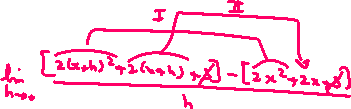 I II
lim h→0 [2(x+h)²+2(x+h)+8] - [2x²+2x+8]
h